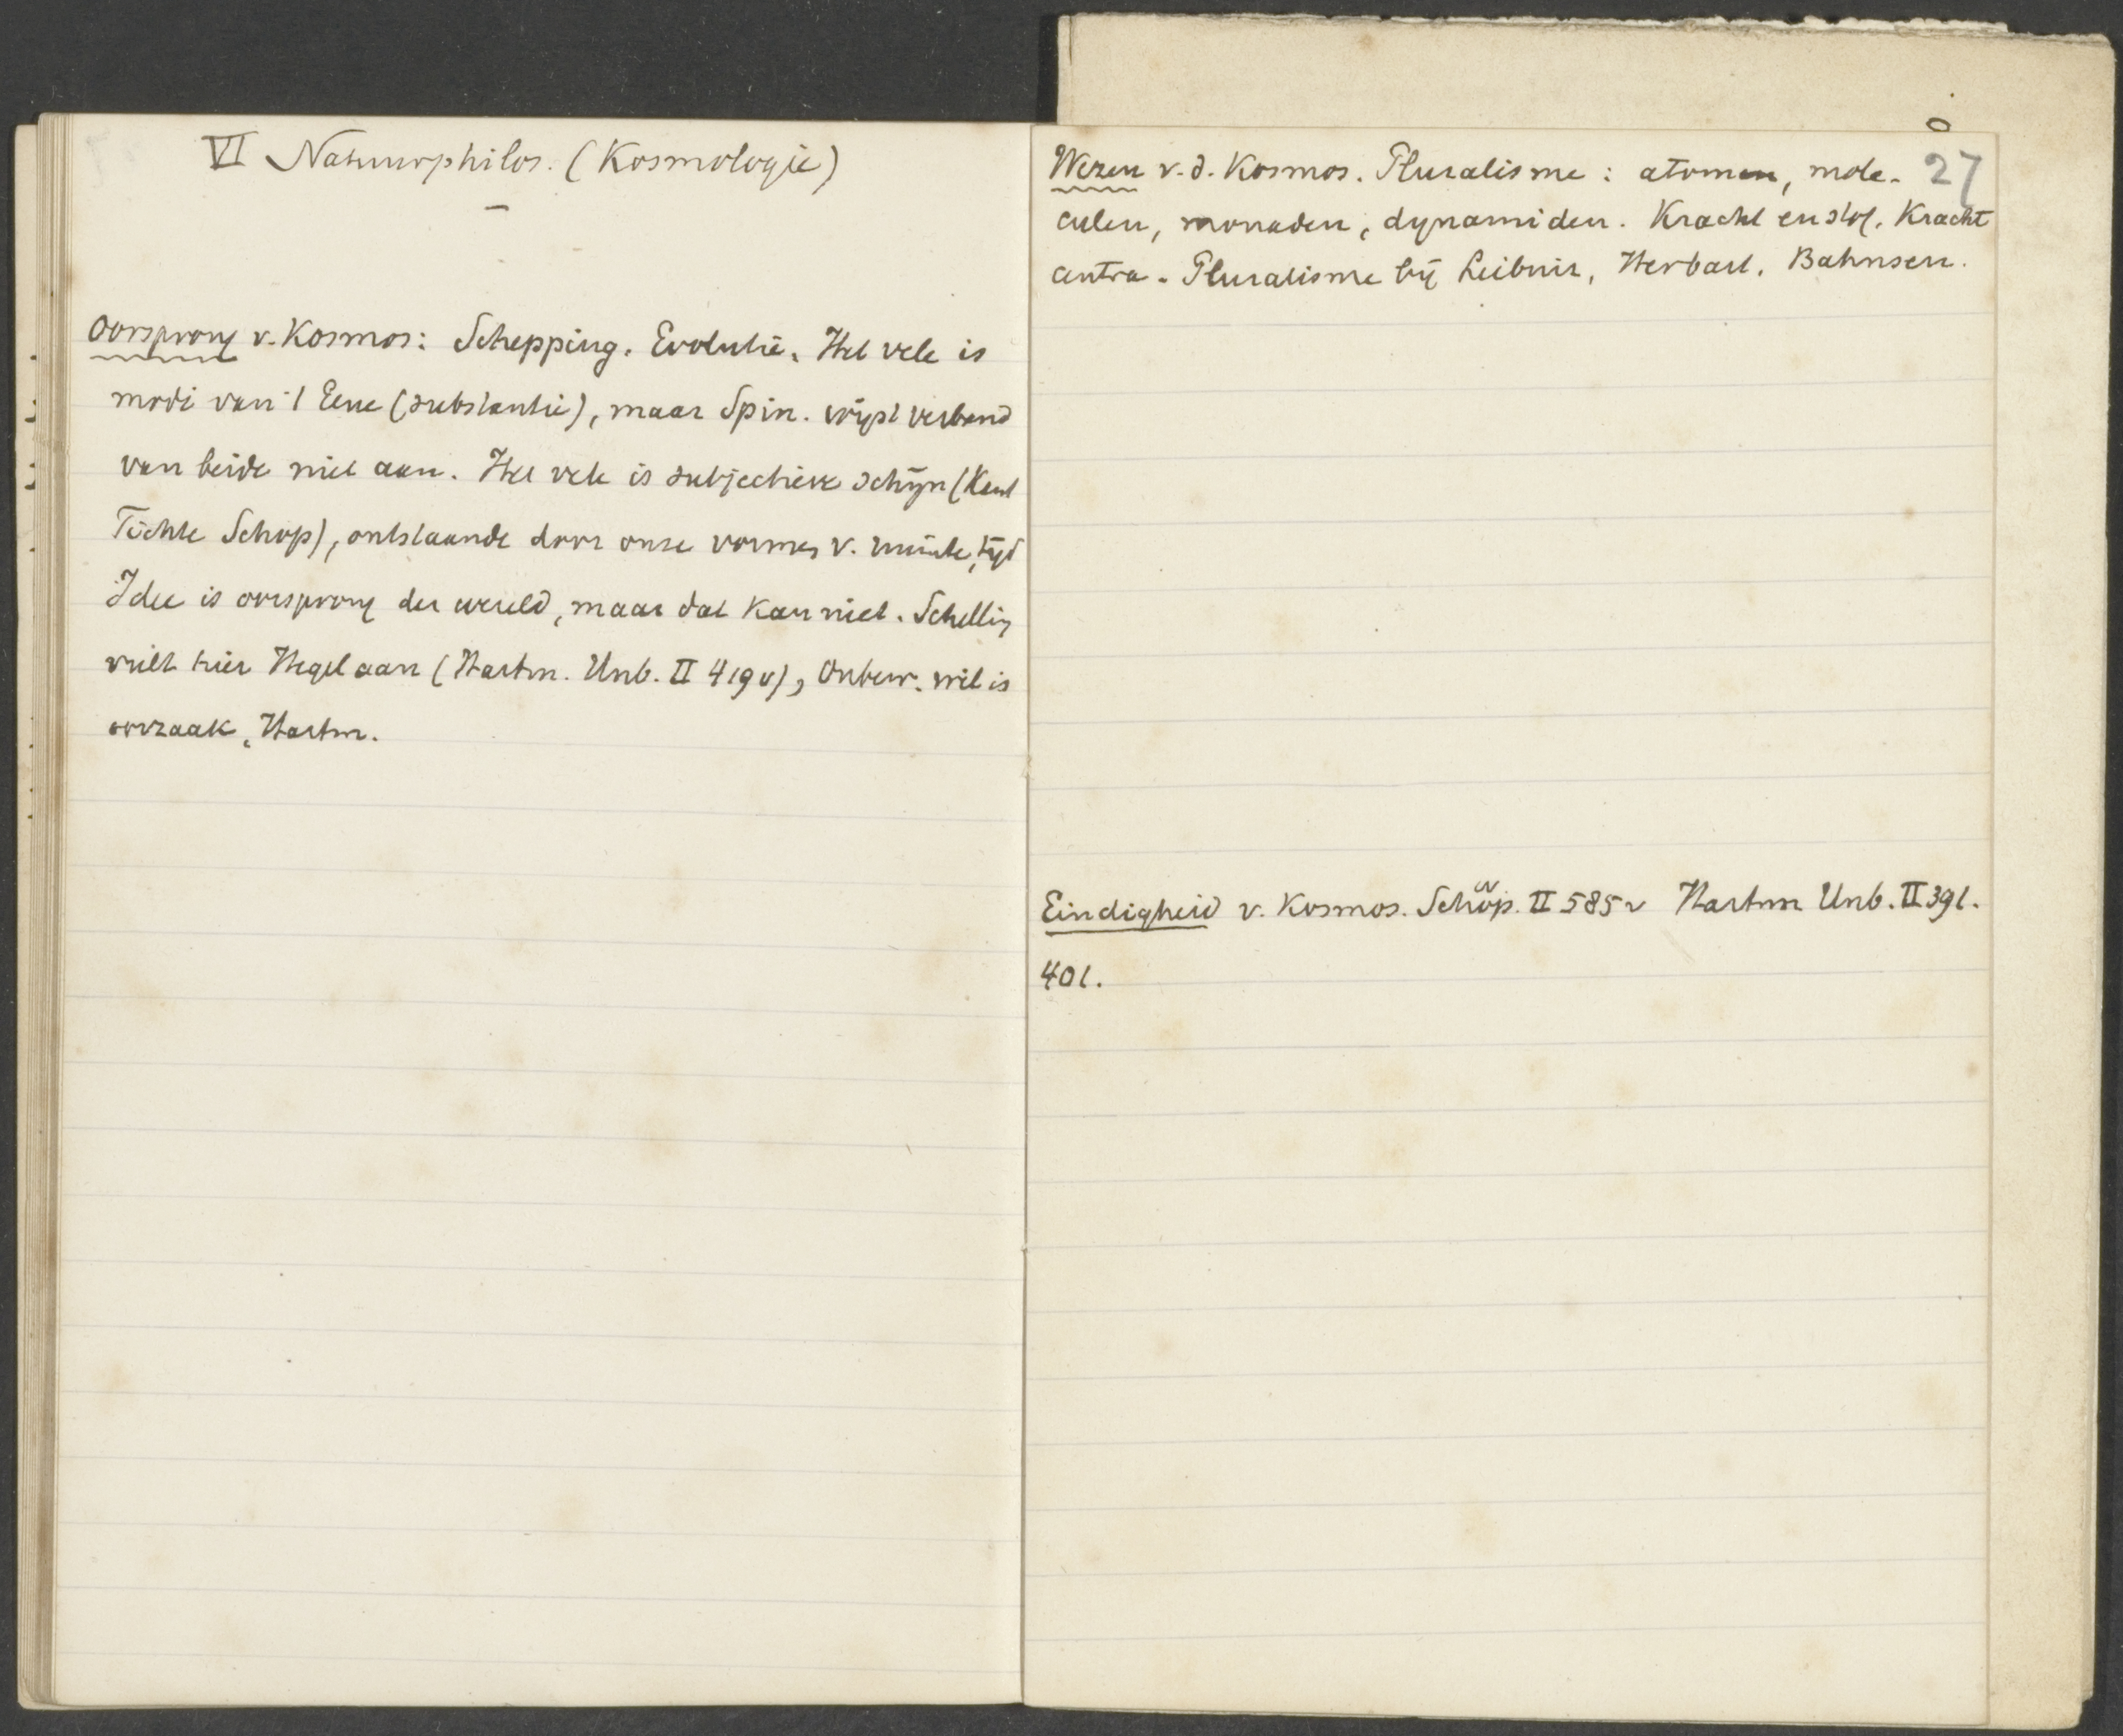 VI Natuurphilos. (Kosmologie)
Oorsprong v. Kosmos: Schepping. Evolutie. Het vele is
modi van 't Eene (substantie), maar Spin. wijst verband
van beide niet aan. Het vele is subjectieve schijn (Kant
Fichte Schop), ontstaande door onze vormen v. ruimte, tijd
Idee is oorsprong der wereld, maar dat kan niet. Schelling
vult hier Hegel aan (Hartm. Unb. II 419 v), Onbew. wil is
oorzaak, Hartm.
27
Wezen v. d. Kosmos. Pluralisme: atomen, mole-
culen, monaden, dynamiden. Kracht en stof. Kracht
centra. Pluralisme bij Leibniz, Herbart, Bahnsen.
Eindigheid v. Kosmos. Schop. II 585 v Hartm Unb. II 391.
401.